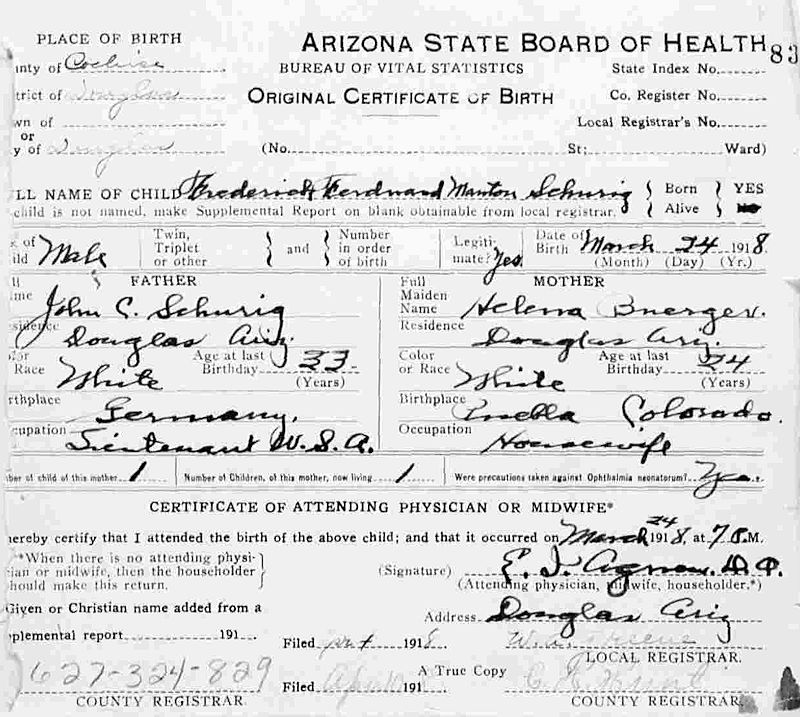 PLACE OF BIRTH
ARIZONA STATE BOARD OF HEALTH 83
unty of Cochise
BUREAU OF VITAL STATISTICS
State Index No.
trict of Douglas
ORIGINAL CERTIFICATE OF BIRTH
Co. Register No.
wn of
Local Registrar's No.
or
y of Douglas
(No. St; Ward)
LL NAME OF CHILD Frederick Ferdnand Manton Schurig } Born YES
child is not named, make Supplemental Report on blank obtainable from local registrar. } Alive NO
x of ild Male
Twin, Triplet or other } and { Number in order of birth
Legiti- mate? Yes
Date of Birth March 24 1918
(Month) (Day) (Yr.)
FATHER
ll me John C. Schurig
sidence Douglas Ariz.
lor Race White
Age at last Birthday 33 (Years)
rthplace Germany.
cupation Lieutenant U.S.A.
MOTHER
Full Maiden Name Helena Buerger.
Residence Douglas Ariz.
Color or Race White
Age at last Birthday 24 (Years)
Birthplace Colorado.
Occupation Housewife
ber of child of this mother 1
Number of Children, of this mother, now living 1
Were precautions taken against Ophthalmia neonatorum? Yes.
CERTIFICATE OF ATTENDING PHYSICIAN OR MIDWIFE*
hereby certify that I attended the birth of the above child; and that it occurred on March 24 1918, at 7 M.
*When there is no attending physi-
ian or midwife, then the householder
hould make this return.
(Signature) E. Agnew. D.O.
(Attending physician, midwife, householder.*)
Given or Christian name added from a
Address Douglas Ariz
pplemental report 191
Filed 1918
W. A. Greene
LOCAL REGISTRAR.
627-324-829
A True Copy
Filed 191
COUNTY REGISTRAR
COUNTY REGISTRAR.